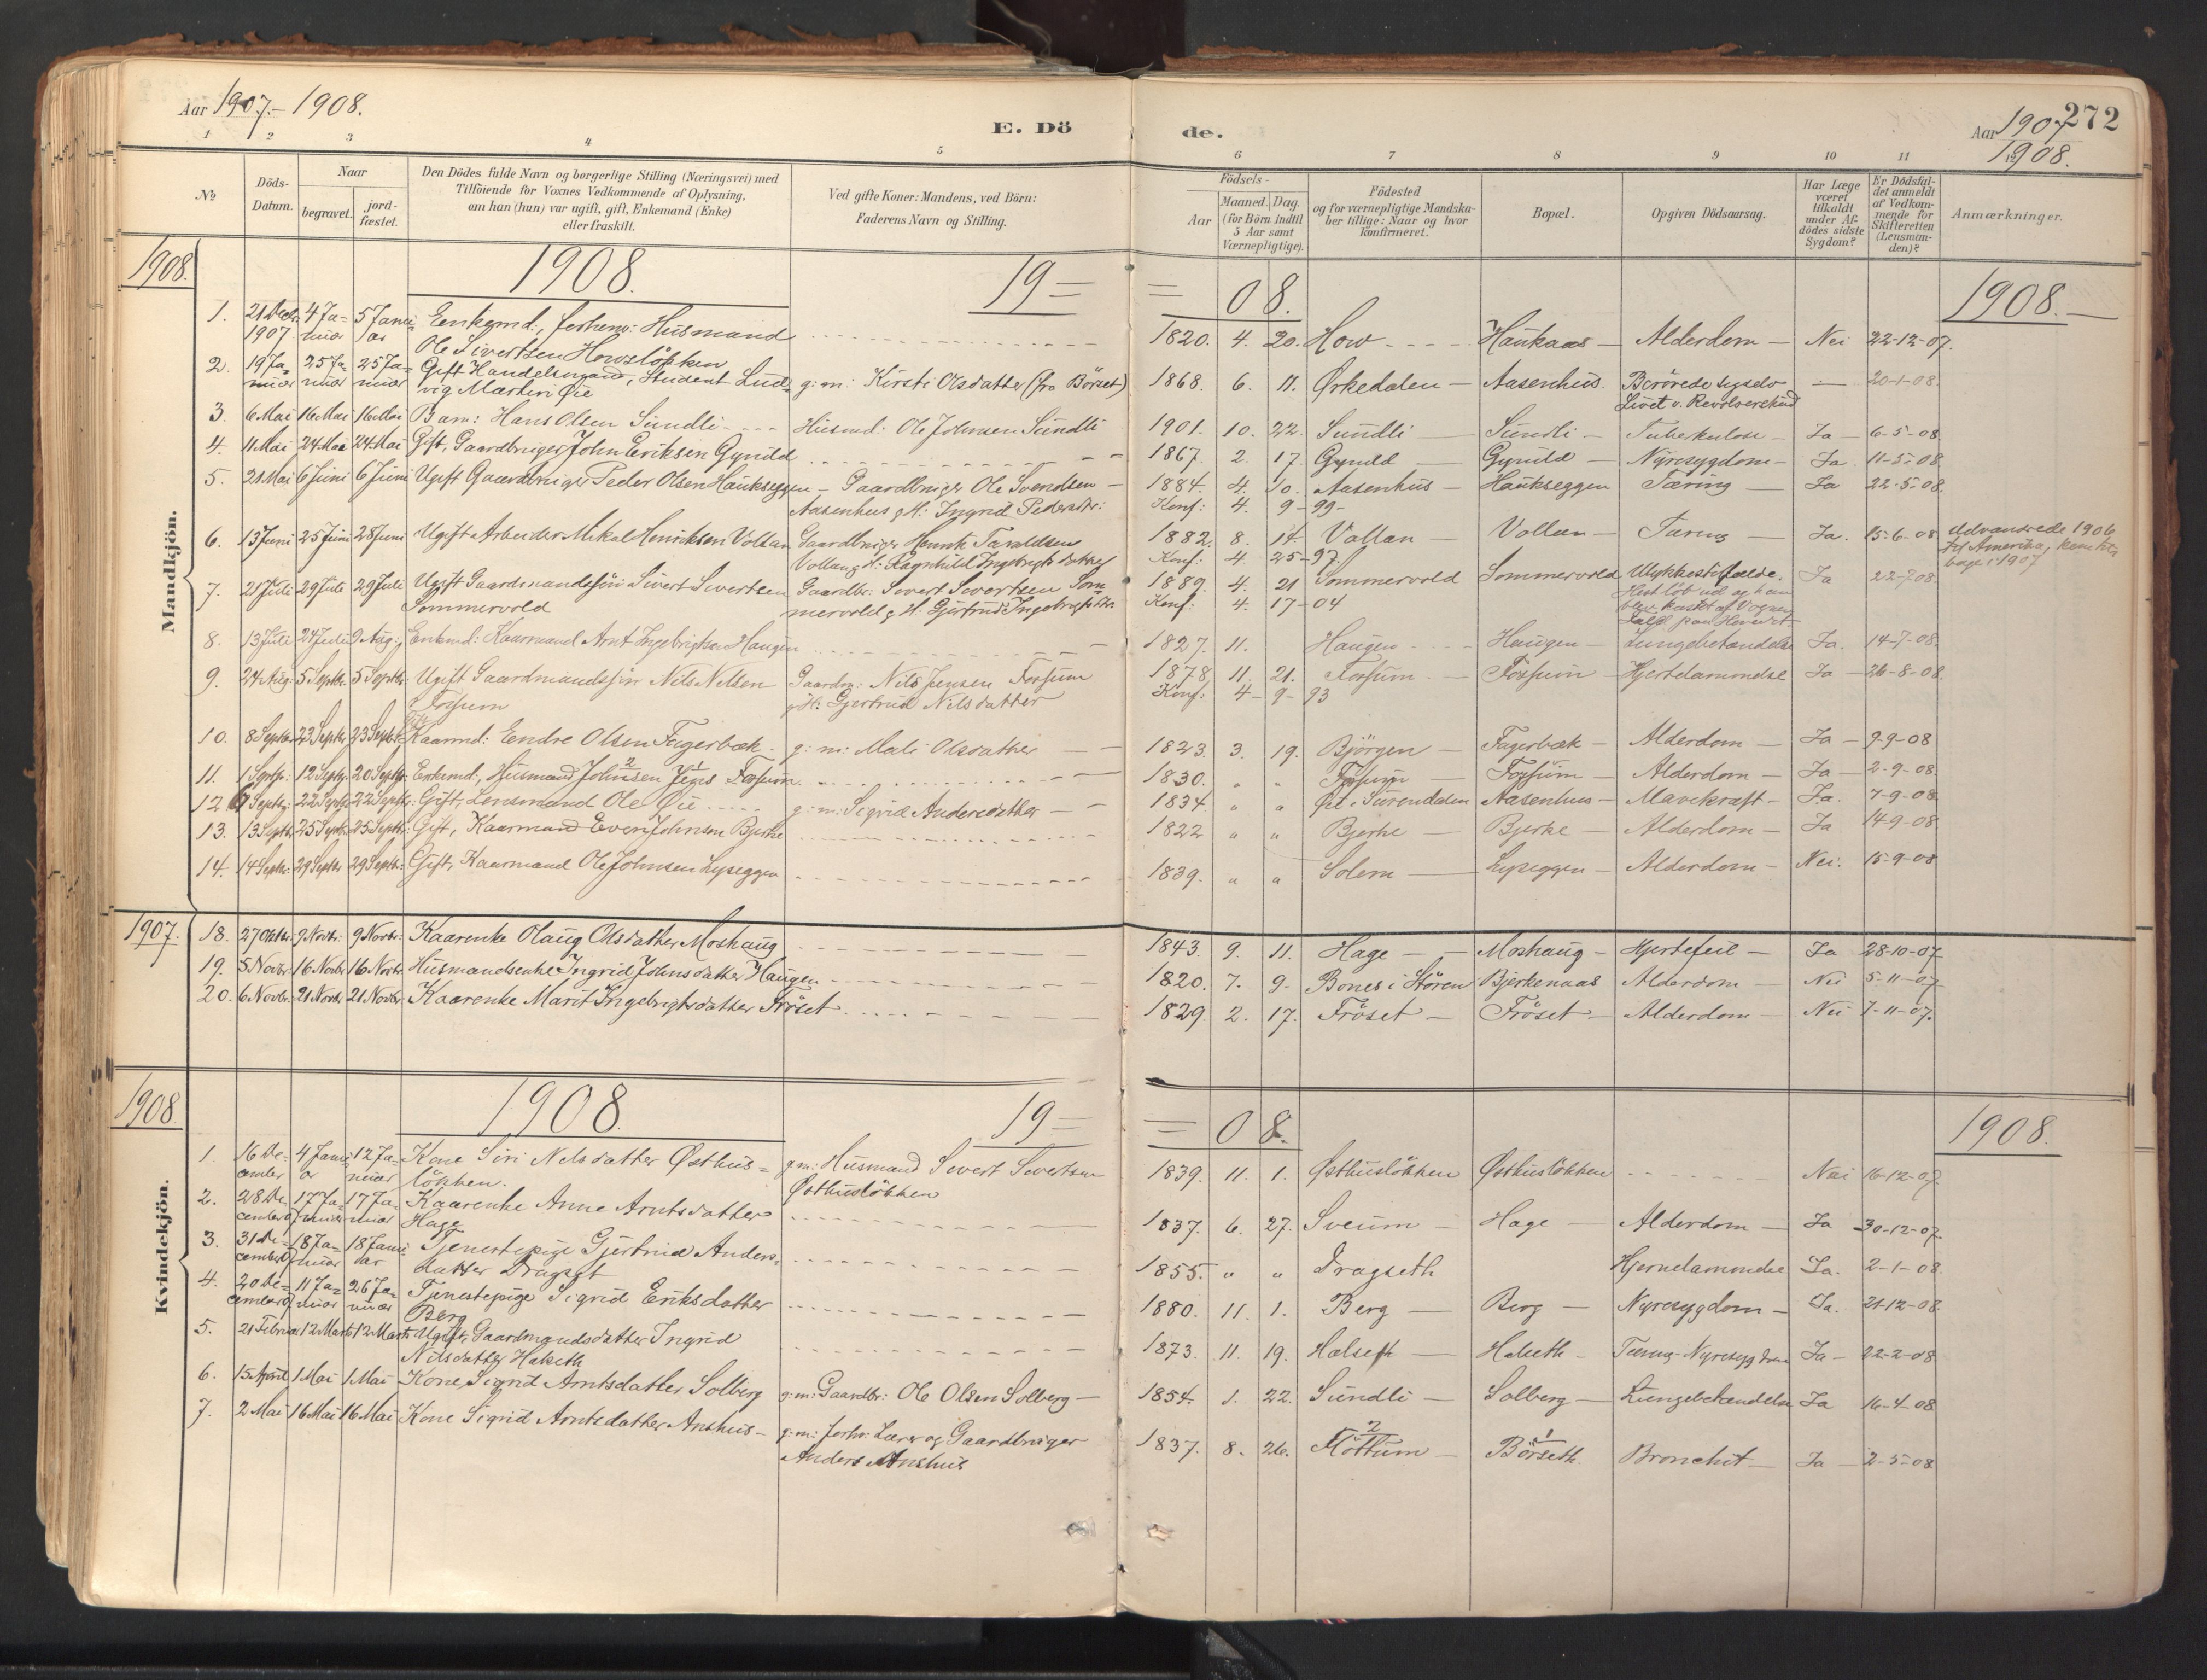 Aar 1907 - 1908.
E. Dö
de.
Aar 1907
1908.
272
1 2 3 4 5 6 7 8 9 10 11
No
Döds-Datum.
Naar
begravet.
jord-fæstet.
Den Dödes fulde Navn og borgerlige Stilling (Næringsvei) med
Tilföiende for Voxnes Vedkommende af Oplysning,
om han (hun) var ugift, gift, Enkemand (Enke)
eller fraskilt.
Ved gifte Koner: Mandens, ved Börn:
Faderens Navn og Stilling.
Födsels-
Aar
Maaned. Dag.
(for Börn indtil
5 Aar samt
Værnepligtige).
Födested
og for værnepligtige Mandska-
ber tillige: Naar og hvor
konfirmeret.
Bopæl.
Opgiven Dödsaarsag.
Har Læge
været
tilkaldt
under Af-
dödes sidste
Sygdom?
Er Dödsfal-
det anmeldt
af Vedkom-
mende for
Skifteretten
(Lensman-
den)?
Anmærkninger.
Mandkjön.
1908. 1908. 19= =08. 1908.
1. 21 Decbr. 1907 4 Januar 5 Januar Enkemd., forhenv: Husmand Ole Sivertsen Howslökken 1820. 4. 20. How Haukaas Alderdom Nei 22-12-07.
2. 19 Januar 25 Januar 25 Januar Gift Handelsmand, Student Ludvig Martin Øie g: m: Kirsti Olsdatter (fra Börset) 1868. 6. 11. Ørkedalen Aasenhus. Berövede sig selv Livet v. Revolverskud 20-1-08.
3. 6 Mai 16 Mai 16 Mai Barn: Hans Olsen Sundli Husmd: Ole Johnsen Sundli 1901. 10. 22. Sundli Sundli Tuberkulose Ja 6-5-08
4. 11 Mai 24 Mai 24 Mai Gift, Gaardbruger John Eriksen Gynild 1867 2. 17. Gynild Gynild Nyresygdom Ja. 11-5-08.
5. 21 Mai 6 Juni 6 Juni Ugift Gaardbruger Peder Olsen Haukseggen Gaardbruger Ole Svendsen Aasenhus g H: Ingrid Pedersdtr: 1884. 4. 10. Aasenhus Haukseggen Tæring Ja 22-5-08.
Konf: 4. 9-99-
6. 13 Juni 25 Juni 28 Juni Ugift Arbeider Mikal Henriksen Vollan Gaardbruger Henrik Taraldsen Vollan g H: Ragnhild Ingebrigtsdatter 1882. 8. 14. Vollan Vollan Tæring Ja. 15-6-08 Udvandrede 1906 til Amerika, kom tilbage i 1907
Konf. 4 25-97.
7. 21 Juli 29 Juli 29 Juli Ugift Gaardmandssön Sivert Sivertsen Sommervold Gaardbr: Sivert Sivertsen Sommervold g H: Gjertrud Ingebrigtsdtr. 1889. 4. 21 Sommervold Sommervold Ulykkestilfælde. Hest löb ud og han blev kastet af Vognen Ja 22-7-08.
Konf: 4. 17-04
8. 13 Juli 24 Juli 9 Aug: Enkemd: Kaarmand Arnt Ingebrigtsen Haugen 1827. 11. Haugen Haugen Lungebetændelse Ja. 14-7-08.
9. 24 Aug: 5 Septbr. 5 Septbr. Ugift Gaardmandssön Nils Nilsen Forsum Gaardm: Nils Jensen Forsum g H: Gjertrud Nilsdatter 1878 11. 21. Forsum Forsum Hjertelammelse Ja 26-8-08.
Konf: 4-9-93
10. 8 Septbr 23 Septbr 23 Septbr Gift Kaarmd: Endre Olsen Fagerbæk g: m: Mali Olsdatter 1823. 3. 19. Bjørgen Fagerbæk Alderdom Ja 9-9-08
11. 1 Septbr. 12 Septbr. 20 Septbr. Enkemd., Husmand Johnsen Jens Forsum 1830. " " Forsum Forsum Alderdom Ja 2-9-08.
12. 6 Septbr. 22 Septbr 22 Septbr. Gift, Lensmand Ole Øie g: m: Sigrid Andersdatter 1834 " " Øie i Surendalen Aasenhus Mavekræft Ja. 7-9-08.
13. 13 Septbr. 25 Septbr. 25 Septbr. Gift, Kaarmand Even Johnsen Bjerke 1822 " " Bjerke Bjerke Alderdom Ja 14-9-08
14. 14 Septbr. 29 Septbr 29 Septbr. Gift, Kaarmand Ole Johnsen Lyseggen 1839. " " Solem Lyseggen Alderdom Nei. 15-9-08
Kvindekjön.
1907.
18. 27 Oktbr. 9 Novbr: 9 Novbr: Kaarenke Olaug Olsdatter Moshaug 1843. 9. 11. Hage Moshaug Hjertefeil Ja 28-10-07.
19. 5 Novbr 16 Novbr 16 Novbr. Husmandsenke Ingrid Johnsdatter Haugen 1820. 7. 9. Bones i Stören Bjerkenaas Alderdom Nei 5-11-07
20. 6 Novbr. 21 Novbr. 21 Novbr. Kaarenke Marit Ingebrigtsdatter Fröset 1829. 2. 17. Fröset Fröset Alderdom Nei 7-11-07.
1908 1908. 19= =08. 1908.
1. 16 December 4 Januar 12 Januar Kone Siri Nilsdatter Østhuslökken. g: m: Husmand Sivert Sivertsen Østhuslökken 1839. 11. 1. Østhuslökken Østhuslökken Nei 16-12-07
2. 28 December 07 17 Januar 17 Januar Kaarenke Anne Arntsdatter Hage 1837. 6. 27. Sveum Hage Alderdom Ja 30-12-07.
3. 31 December 07 18 Januar 18 Januar Tjenestepige Gjertrud Andersdatter Dragset 1855. " " Dragseth Hjernelammelse Ja. 2-1-08.
4. 20 December 07 11 Januar 26 Januar Tjenestepige Sigrid Eriksdatter Berg 1880. 11. 1. Berg Berg Nyresygdom Ja. 21-12-08.
5. 21 Februar 12 Marts 12 Marts Ugift, Gaardmandsdatter Ingrid Nilsdatter Halseth 1873. 11. 19. Halseth Halseth Tæring-Nyresygdom Ja 22-2-08
6. 15 April 1 Mai 1 Mai Kone, Sigrid Arntsdatter Solberg g: m: Gaardbr: Ole Olsen Solberg 1854. 1. 22. Sundli Solberg Lungebetændelse Ja 16-4-08
7. 2 Mai 16 Mai 16 Mai Kone Sigrid Arntsdatter Anshus g: m: forhv: Lærer og Gaardbruger Anders Anshus 1837. 8. 26. Flöttum Börseth Bronchit Ja 2-5-08